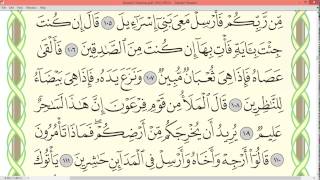 مِّن رَّبِّكُمْ فَأَرْسِلْ مَعِيَ بَنِىٓ إِسْرَٰٓءِيلَ ١٠٥ قَالَ إِن كُنتَ
جِئْتَ بِـَٔايَةٍ فَأْتِ بِهَآ إِن كُنتَ مِنَ ٱلصَّـٰدِقِينَ ١٠٦ فَأَلْقَىٰ
عَصَاهُ فَإِذَا هِىَ ثُعْبَانٌ مُّبِينٌ ١٠٧ وَنَزَعَ يَدَهُۥ فَإِذَا هِىَ بَيْضَآءُ
لِلنَّـٰظِرِينَ ١٠٨ قَالَ ٱلْمَلَأُ مِن قَوْمِ فِرْعَوْنَ إِنَّ هَـٰذَا لَسَـٰحِرٌ
عَلِيمٌ ١٠٩ يُرِيدُ أَن يُخْرِجَكُم مِّنْ أَرْضِكُمْ فَمَاذَا تَأْمُرُونَ
١١٠ قَالُوٓا۟ أَرْجِهْ وَأَخَاهُ وَأَرْسِلْ فِى ٱلْمَدَآئِنِ حَـٰشِرِينَ ١١١ يَأْتُوكَ